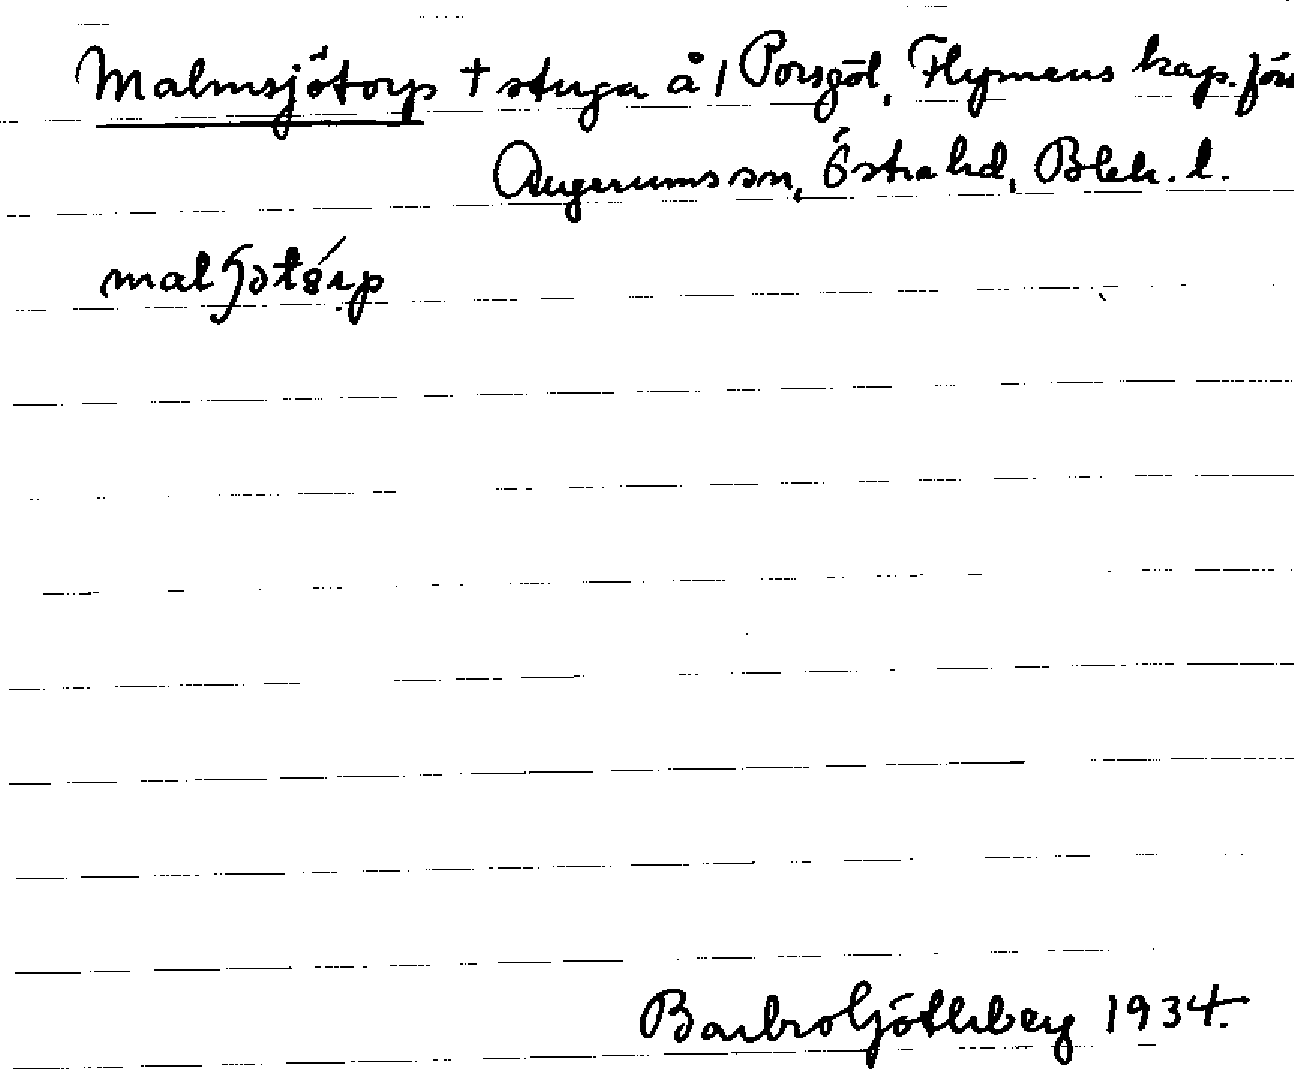 Malmsjötorp † stuga å 1 Porsgöl, Flymens kap. för
Augerums sn, Östra hd, Blek. l.
Barbro Göthberg 1934.